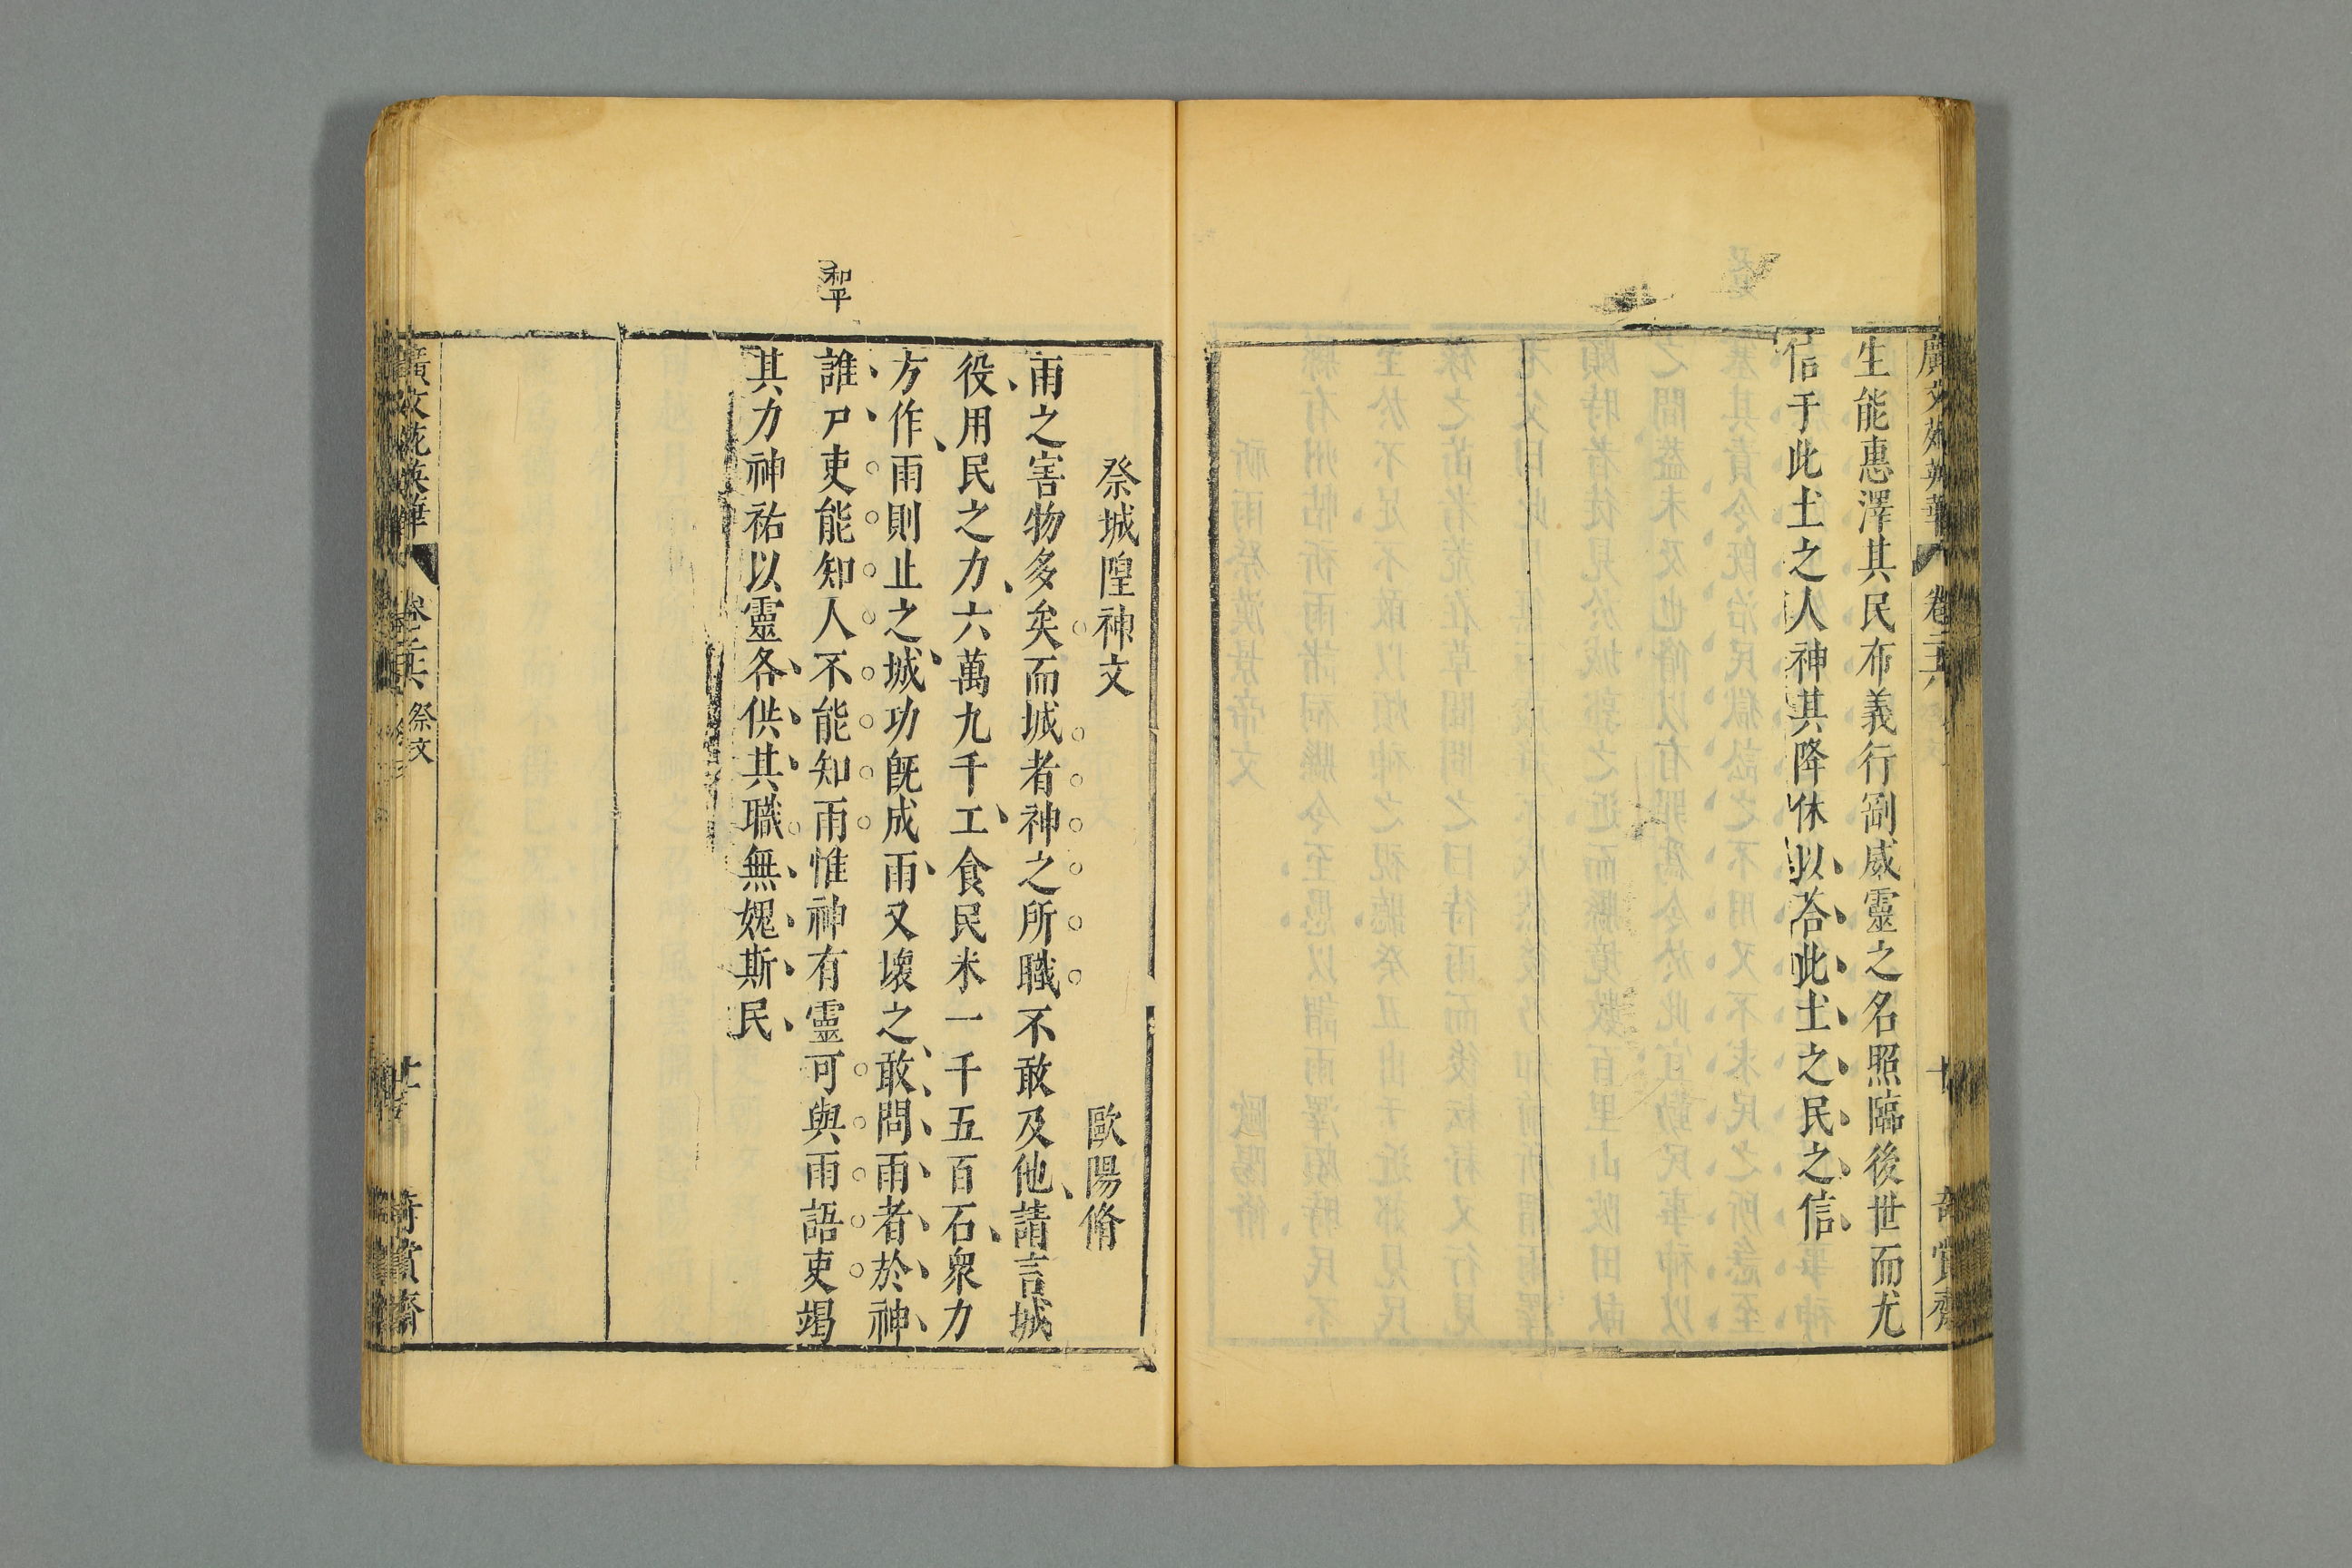 廣文苑英華
卷二六
奇賞齋
生能惠澤其民布義行剛威靈之名照臨後世而尤
信于此土之人神其降休以荅此土之民之信
祭城隍神文
歐陽脩
雨之害物多矣而城者神之所職不敢及他請言城
役用民之力六萬九千工食民米一千五百石衆力
方作雨則止之城功旣成雨又壞之敢問雨者於神
誰尸吏能知人不能知雨惟神有靈可與雨語吏竭
其力神祐以靈各供其職無媿斯民
和平
廣文苑英華
祭文
奇賞齋